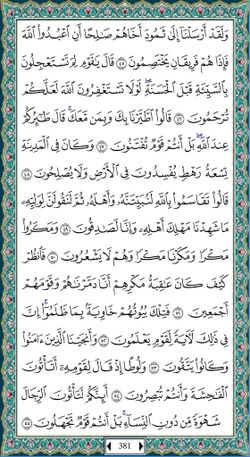 وَلَقَدْ أَرْسَلْنَا إِلَىٰ ثَمُودَ أَخَاهُمْ صَالِحًا أَنِ ٱعْبُدُوا۟ ٱللَّهَ
فَإِذَا هُمْ فَرِيقَانِ يَخْتَصِمُونَ ٤٥ قَالَ يَـٰقَوْمِ لِمَ تَسْتَعْجِلُونَ
بِٱلسَّيِّئَةِ قَبْلَ ٱلْحَسَنَةِ ۖ لَوْلَا تَسْتَغْفِرُونَ ٱللَّهَ لَعَلَّكُمْ
تُرْحَمُونَ ٤٦ قَالُوا۟ ٱطَّيَّرْنَا بِكَ وَبِمَن مَّعَكَ ۚ قَالَ طَـٰٓئِرُكُمْ
عِندَ ٱللَّهِ ۖ بَلْ أَنتُمْ قَوْمٌ تُفْتَنُونَ ٤٧ وَكَانَ فِى ٱلْمَدِينَةِ
تِسْعَةُ رَهْطٍ يُفْسِدُونَ فِى ٱلْأَرْضِ وَلَا يُصْلِحُونَ ٤٨
قَالُوا۟ تَقَاسَمُوا۟ بِٱللَّهِ لَنُبَيِّتَنَّهُۥ وَأَهْلَهُۥ ثُمَّ لَنَقُولَنَّ لِوَلِيِّهِۦ
مَا شَهِدْنَا مَهْلِكَ أَهْلِهِۦ وَإِنَّا لَصَـٰدِقُونَ ٤٩ وَمَكَرُوا۟
مَكْرًا وَمَكَرْنَا مَكْرًا وَهُمْ لَا يَشْعُرُونَ ٥٠ فَٱنظُرْ
كَيْفَ كَانَ عَـٰقِبَةُ مَكْرِهِمْ أَنَّا دَمَّرْنَـٰهُمْ وَقَوْمَهُمْ
أَجْمَعِينَ ٥١ فَتِلْكَ بُيُوتُهُمْ خَاوِيَةًۢ بِمَا ظَلَمُوٓا۟ ۗ إِنَّ
فِى ذَٰلِكَ لَـَٔايَةً لِّقَوْمٍ يَعْلَمُونَ ٥٢ وَأَنجَيْنَا ٱلَّذِينَ ءَامَنُوا۟
وَكَانُوا۟ يَتَّقُونَ ٥٣ وَلُوطًا إِذْ قَالَ لِقَوْمِهِۦٓ أَتَأْتُونَ
ٱلْفَـٰحِشَةَ وَأَنتُمْ تُبْصِرُونَ ٥٤ أَئِنَّكُمْ لَتَأْتُونَ ٱلرِّجَالَ
شَهْوَةً مِّن دُونِ ٱلنِّسَآءِ ۚ بَلْ أَنتُمْ قَوْمٌ تَجْهَلُونَ ٥٥
381